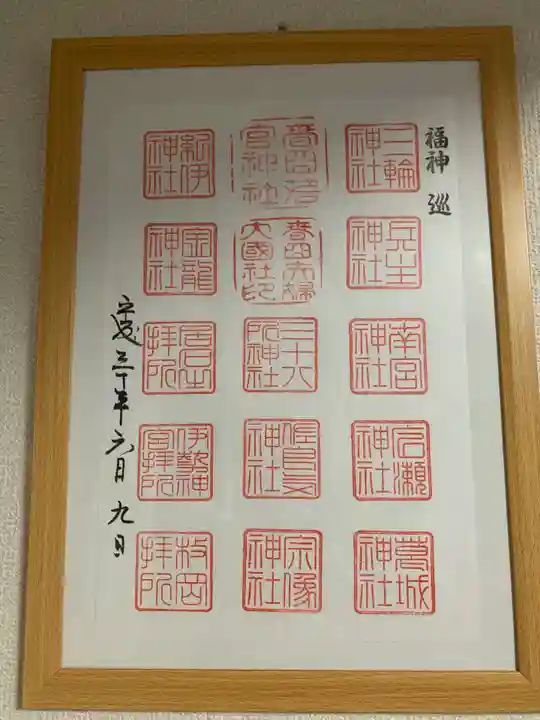 福神 巡
三輪神社
兵主神社
南宮神社
広瀬神社
葛城神社
春日若宮神社
春日夫婦大國社印
三十八所神社
佐良気神社
宗像神社
紀伊神社
金龍神社
伊勢神宮拝所
枚岡拝所
平成三十年六月九日